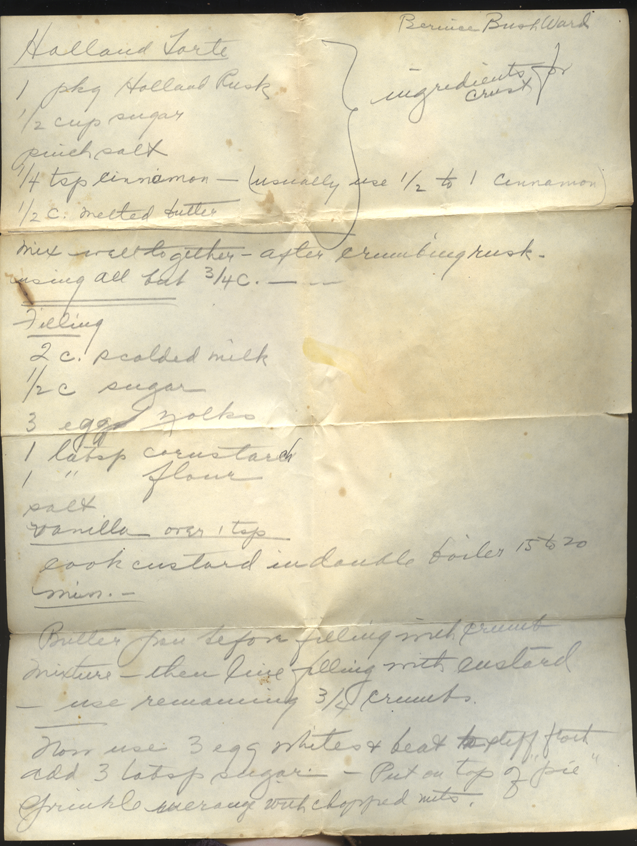 Bernice Bush Ward
Holland Torte
1 pkg Holland Rusk
1/2 cup sugar
pinch salt
1/4 tsp cinnamon – (usually use 1/2 to 1 cinnamon)
1/2 c. melted butter
ingredients for
crust
mix well together – after crumbing rusk.
using all but 3/4 c. – – –
Filling
2 c. scalded milk
1/2 c sugar
3 egg yolks
1 tabsp cornstarch
1 " flour
salt
vanilla over 1 tsp
cook custard in double boiler 15 to 20
min. –
Butter pan before filling with crumb
mixture – then line filling with custard
– use remaining 3/4 crumbs.
Now use 3 egg whites & beat to stiff froth
add 3 tabsp sugar – Put on top of "pie"
Sprinkle merang with chopped nuts.